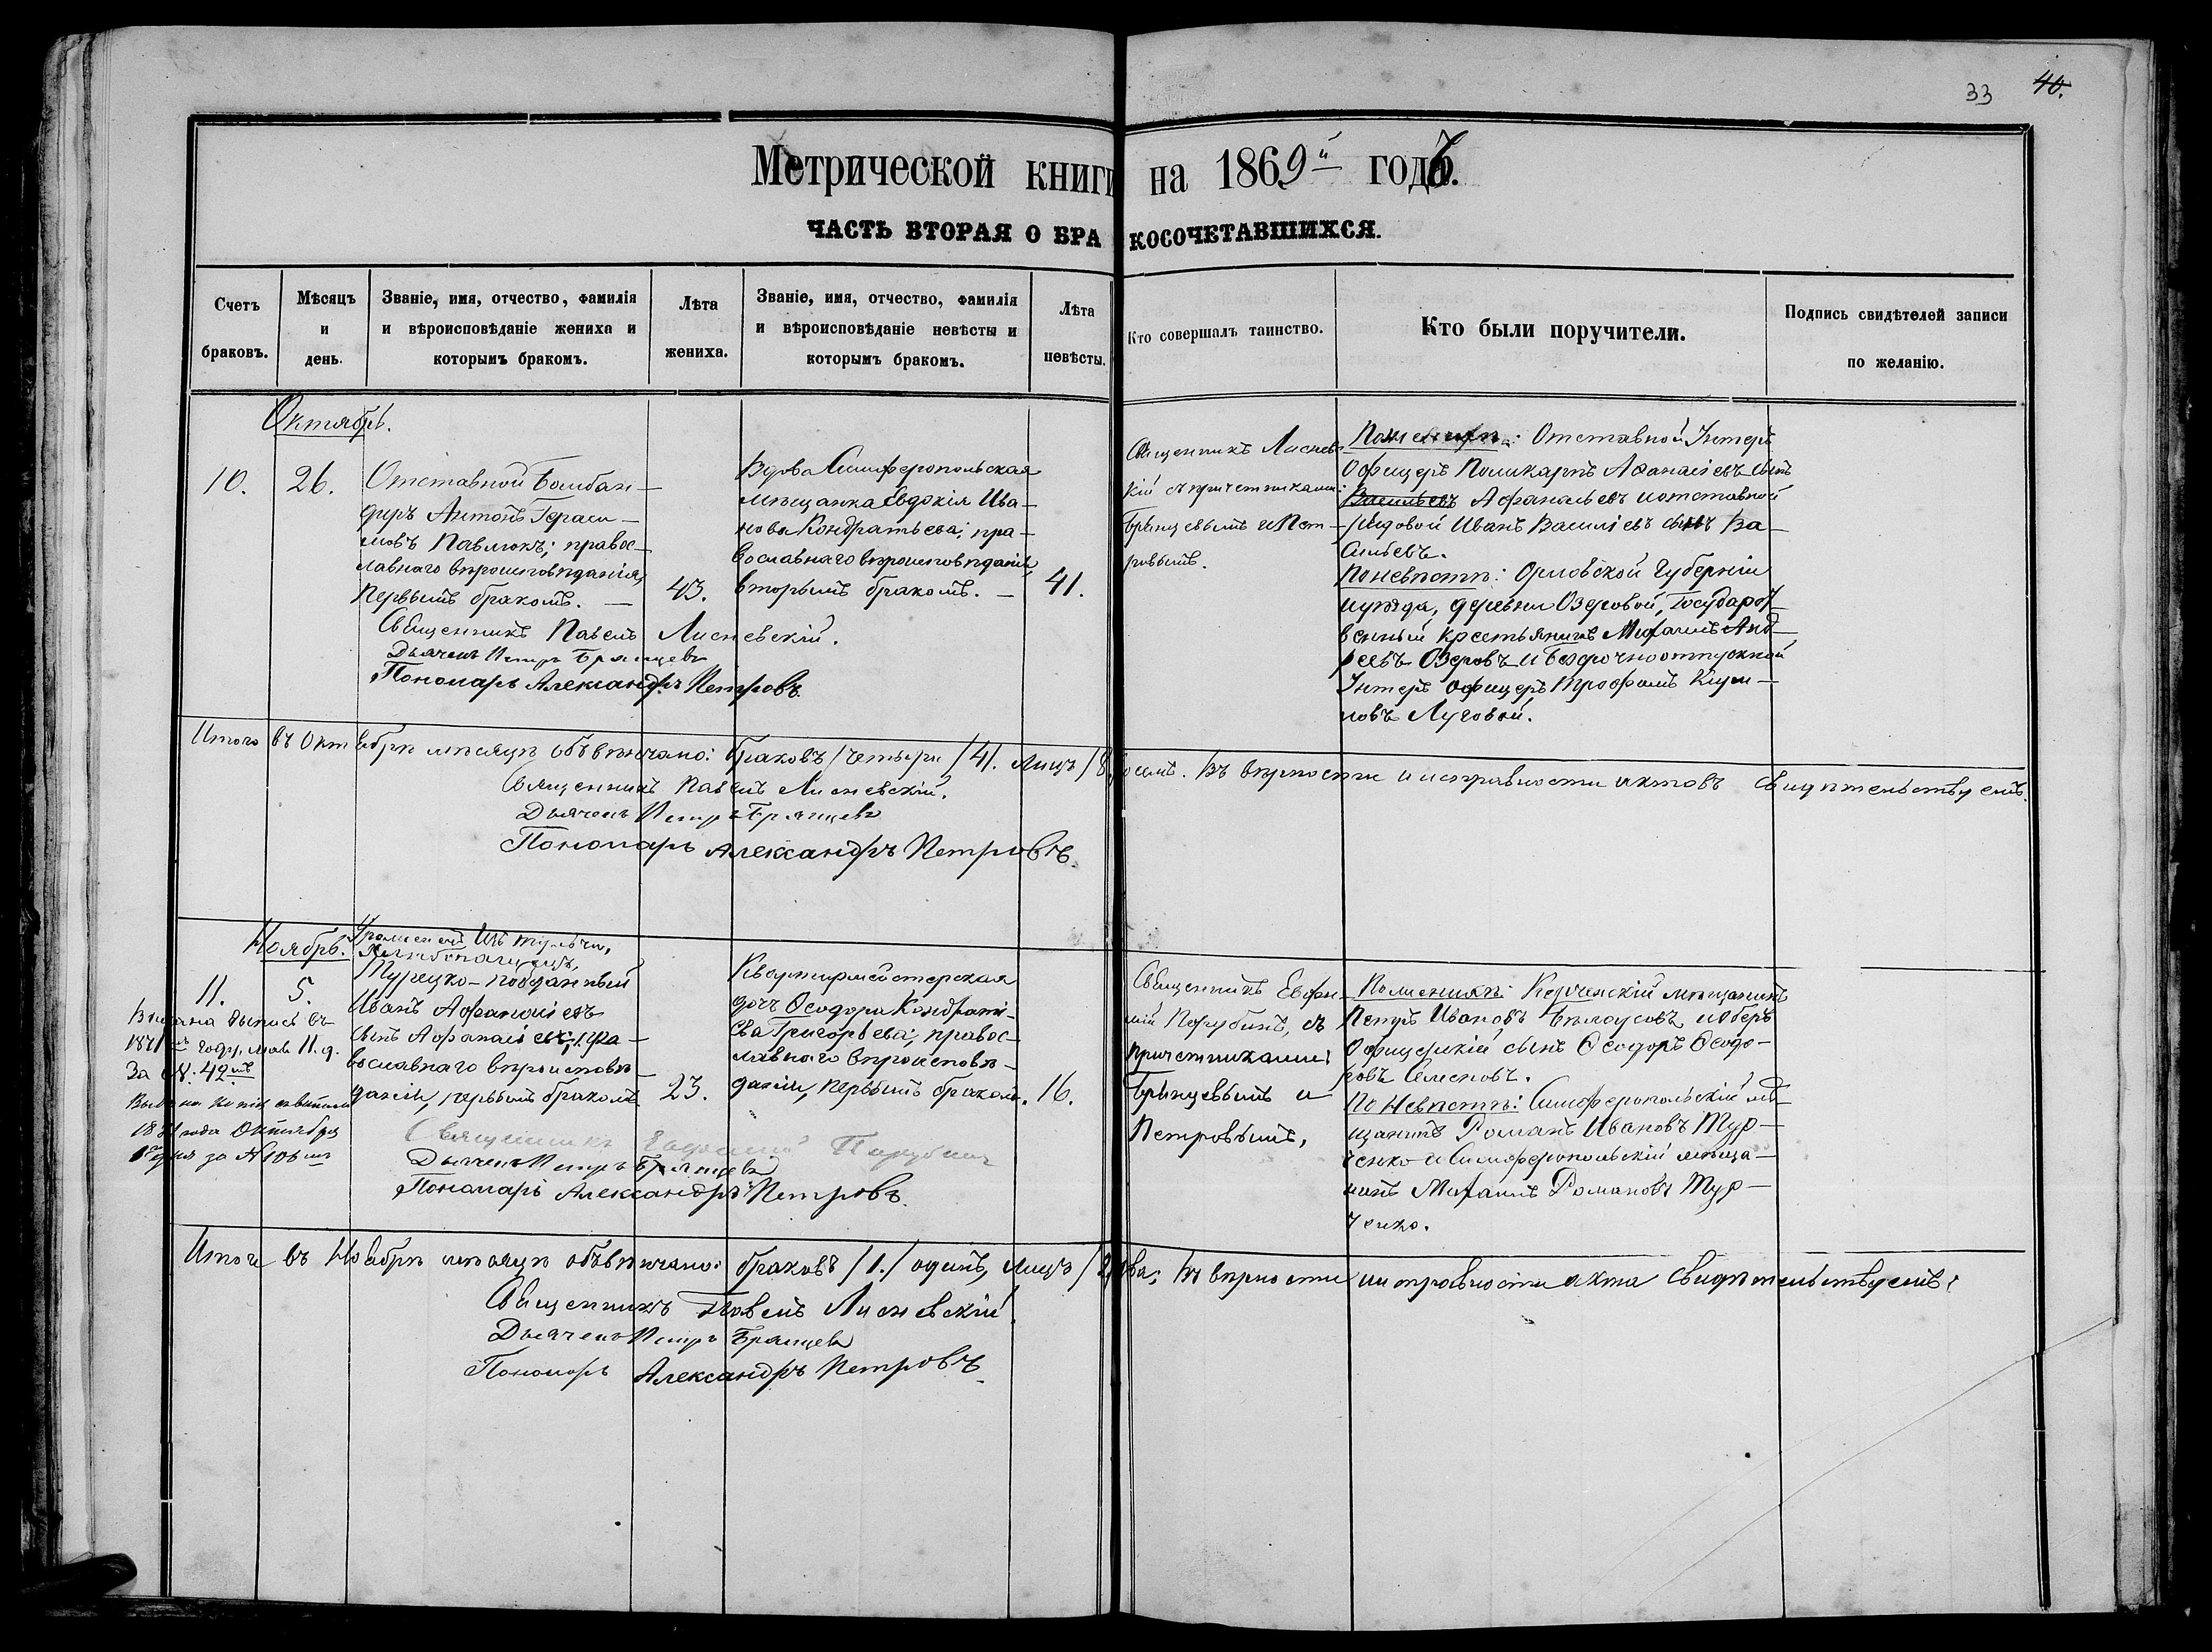 33 40.
Метрической книги на 1869й годъ.
ЧАСТЬ ВТОРАЯ О БРАКОСОЧЕТАВШИХСЯ.
Счетъ
браковъ.
Мѣсяцъ
и
день.
Званіе, имя, отчество, фамилія
и вѣроисповѣданіе жениха и
которымъ бракомъ.
Лѣта
жениха.
Званіе, имя, отчество, фамилія
и вѣроисповѣданіе невѣсты и
которымъ бракомъ.
Лѣта
невѣсты.
Кто совершалъ таинство.
Кто были поручители.
Подпись свидѣтелей записи
по желанію.
Октябрь.
10.
26.
Отставной Бомбан-
диръ Антонъ Гераси-
мовъ Павлюкъ; правос-
лавнаго вѣроисповѣданія,
первымъ бракомъ. —
43.
Вдова Симферопольская
мѣщанка Евдокія Ива-
нова Кондратьева; пра-
вославнаго вѣроисповѣданія,
вторымъ бракомъ. —
41.
Священникъ Павелъ Лисневскій.
Дьячекъ Петръ Брянцевъ
Пономарь Александръ Петровъ
Священникъ Лиснев-
кій съ причетниками:
Брянцевымъ и Пет-
ровымъ.
По женихѣ: Отставной Унтеръ
Офицеръ Поликарпъ Афанасіевъ сынъ
Васильевъ Афанасьевъ и отставной
рядовой Иванъ Василіевъ сынъ Ва-
сильевъ.
По невѣстѣ: Орловской Губерніи
и уѣзда, деревни Озеровой, Государст-
венный крестьянинъ Михаилъ Анд-
реевъ Озеровъ и безсрочноотпускной
Унтеръ Офицеръ Трофимъ
новъ Луговой.
Итого въ Октябрѣ мѣсяцѣ обвѣнчано: браковъ /четыри/ 4/. лицъ /8/ осемь. Въ вѣрности и исправности актовъ свидѣтельствуемъ.
Священникъ Павелъ Лисневскій.
Дьячекъ Петръ Брянцевъ
Пономарь Александръ Петровъ.
Ноябрь.
11.
5.
Выдана выпись въ
1871мъ году, мая 11. д.
За №. 42мъ
Выдана копія
1881 года Октября
за № 106мъ
Турецко-подданный
Иванъ Афанасіевъ
сынъ Афанасіевъ; пра-
вославнаго вѣроисповѣ-
данія, первымъ бракомъ.
23.
Квартирмейстерская
дочь Ѳеодора Кондрати-
ева Григорьева; правос-
лавнаго вѣроисповѣ-
данія, первымъ бракомъ.
16.
Священникъ Евфимій Парубинъ
Дьячекъ Петръ Брянцевъ
Пономарь Александръ Петровъ.
Священникъ Евфи-
мій Парубинъ, съ
причетниками:
Брянцевымъ и
Петровымъ,
По женихѣ: Керченскій мѣщанинъ
Петръ Ивановъ Бѣлоусовъ и оберъ
Офицерскій сынъ Ѳеодоръ Ѳеодо-
ровъ Семеновъ.
По Невѣстѣ: Симферопольскій мѣ-
щанинъ Романъ Ивановъ Тур-
ченко и Симферопольскій мѣща-
нинъ Михаилъ Романовъ Тур-
ченко.
Итого въ Ноябрѣ мѣсяцѣ обвѣнчано: браковъ /1./ одинъ, лицъ /2/ два; Въ вѣрности и исправности акта свидѣтельствуемъ:
Священникъ Павелъ Лисневскій.
Дьячекъ Петръ Брянцевъ
Пономарь Александръ Петровъ.